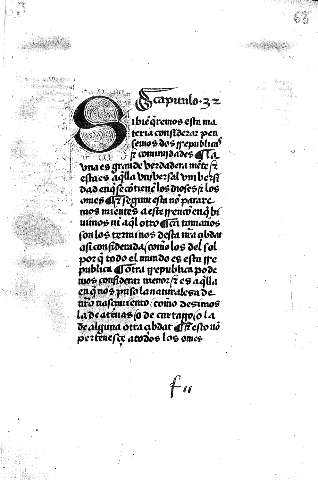 63
Capitulo .32
Si biē q̄remos esta ma
teria considerar pen
semos dos rrepublicas
& comunidades ¶ La
vna es grande verdadera mēte &
esta es aq̄lla vniversal vniversi
dad en q̄ se cōtiene los dioses & los
omes ¶ & segunt esto nō parare
mos mientes a este rrencō en q̄ bi
uimos ni aq̄l otro ¶ Cā tamaños
son los terminos desta mā çibdat
asi considerada, como los del sol
por q̄ todo el mundo es esta rre
publica ¶ Otra rrepublica pode
mos considerar menor & es aq̄lla
en q̄ nos puso la naturalesa de
nr̄o nasçimiento: como desimos
la de atenas, o de cartago, o la
de alguna otra çibdat ¶ & esto nō
pertenesçe a todos los omes